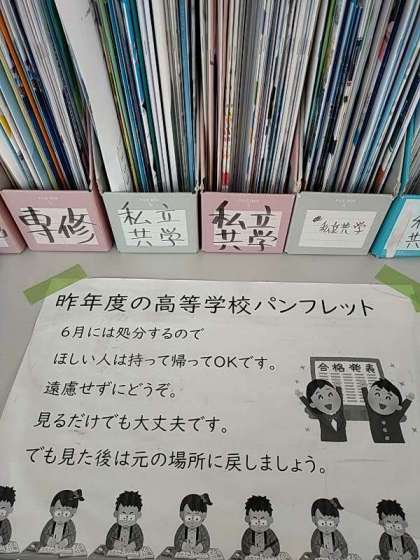 専修
私立
共学
私立
共学
私立共学
昨年度の高等学校パンフレット
6月には処分するので
ほしい人は持って帰ってOKです。
遠慮せずにどうぞ。
見るだけでも大丈夫です。
でも見た後は元の場所に戻しましょう。
合格発表